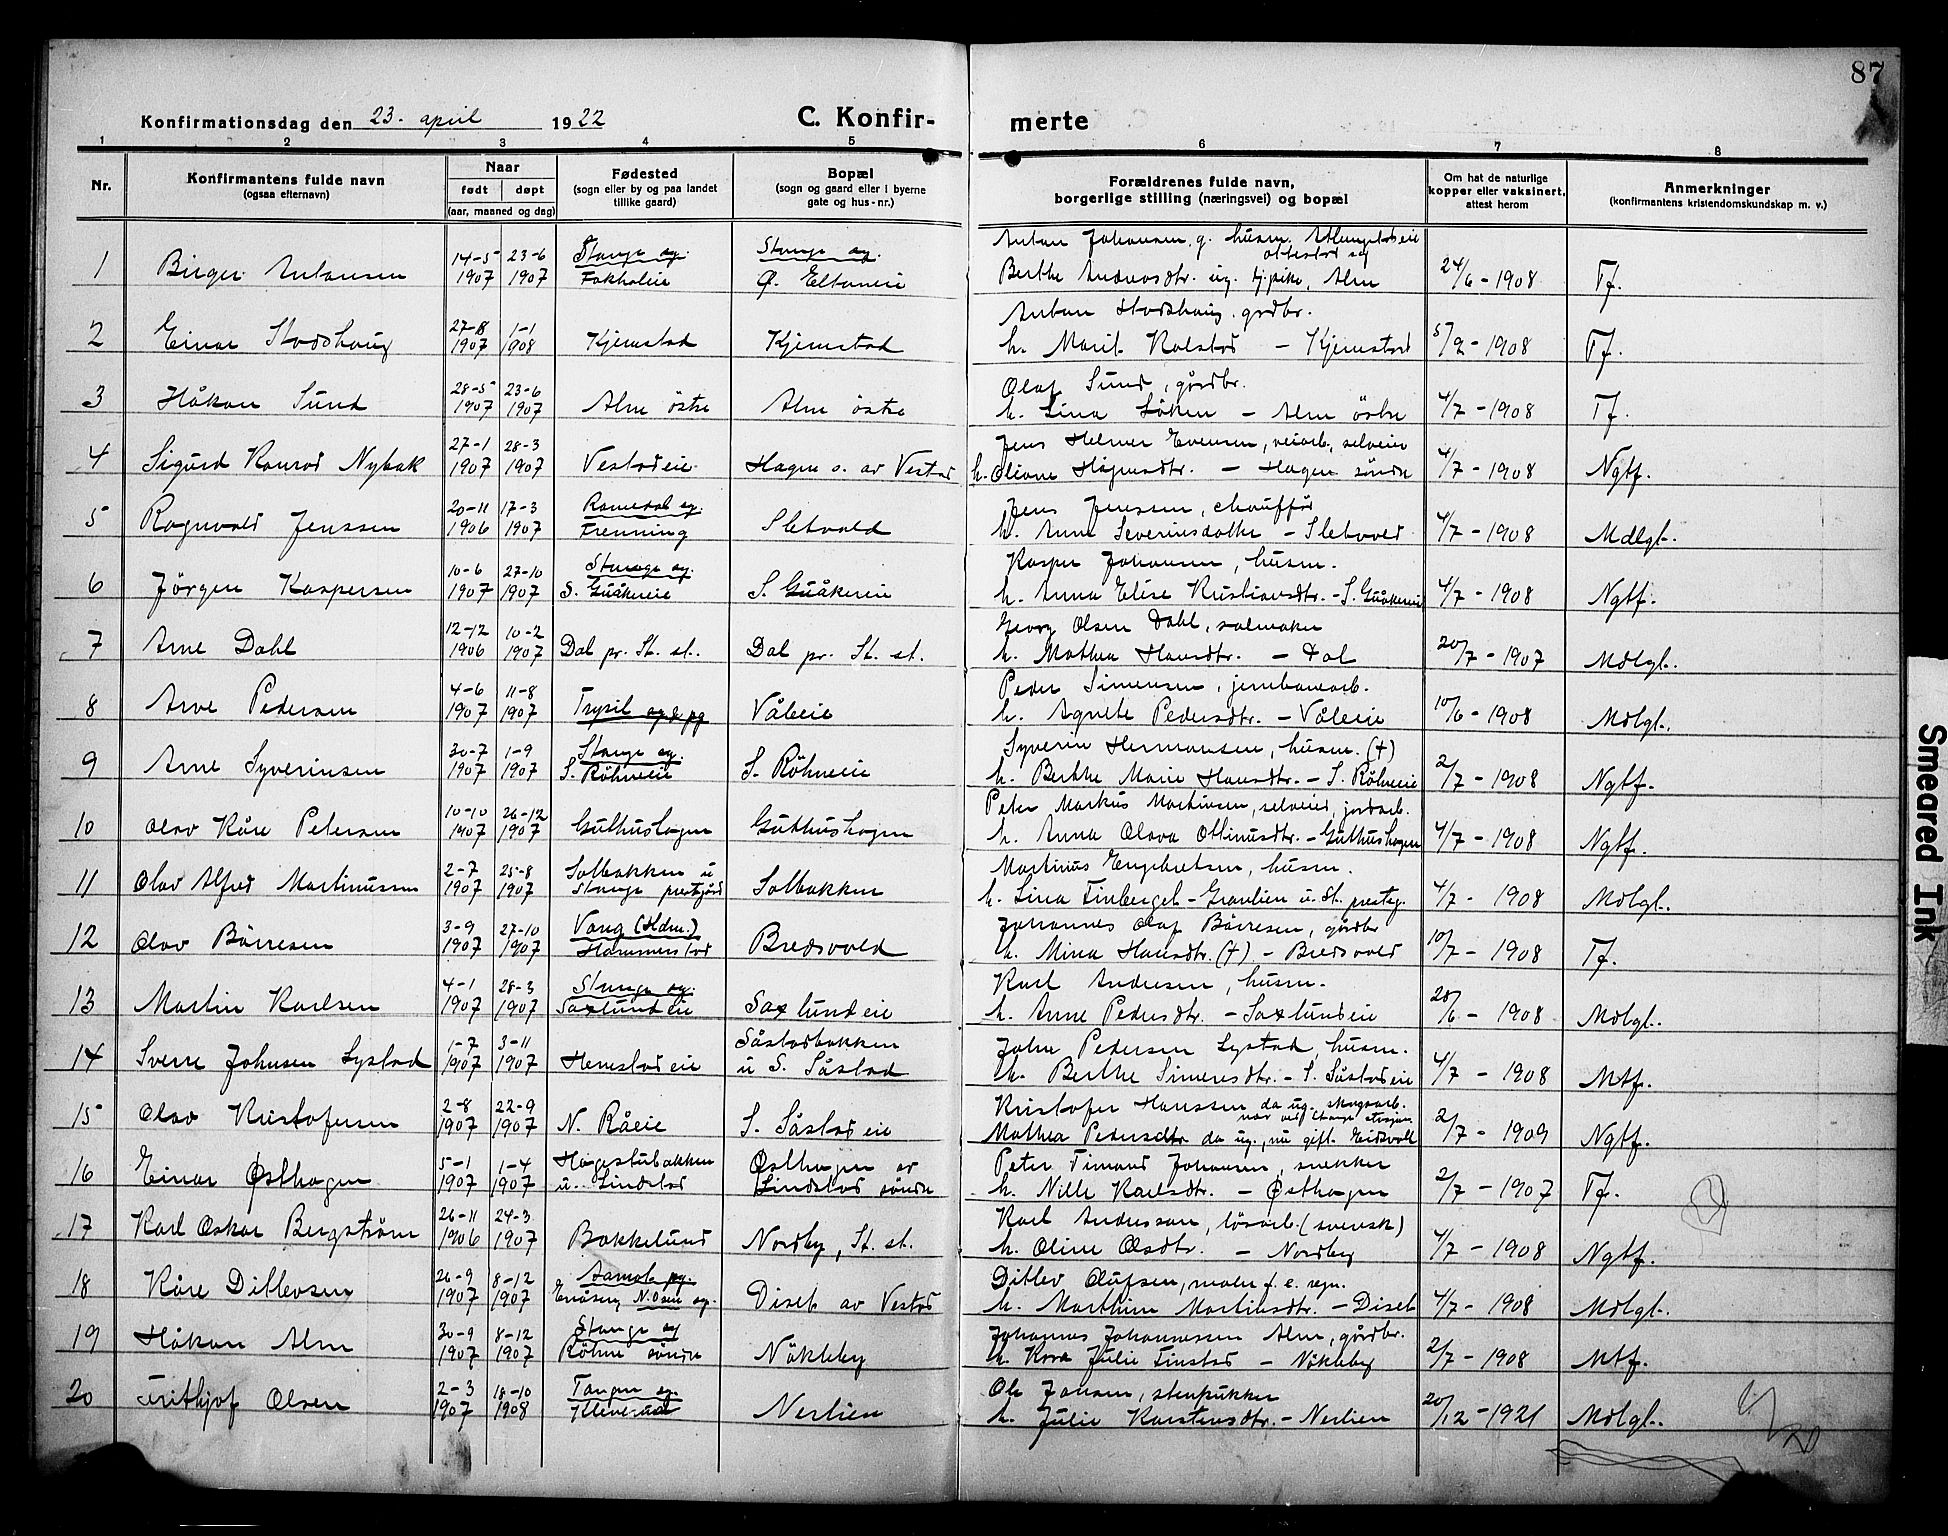 87
Konfirmationsdag den 23. april 1922
C. Konfir-
merte
1 2 3 4 5 6 7 8
Nr.
Konfirmantens fulde navn
(ogsaa efternavn)
Naar
født døpt
(aar, maaned og dag)
Fødested
(sogn eller by og paa landet
tillike gaard)
Bopæl
(sogn og gaard eller i byerne
gate og hus-nr.)
Forældrenes fulde navn,
borgerlige stilling (næringsvei) og bopæl
Om hat de naturlige
kopper eller vaksinert,
attest herom
Anmerkninger
(konfirmantens kristendomskundskap m. v.)
14-5 23-6 Stange sg. Stange sg. Anton Johansen, g. husm.
1 Birger Antonsen 1907 1907 Ø. Eltoneie Berthe Andreasdtr. ug. tj.pike, Alm 24/6-1908 Tf.
27-8 1-1 Anton Stodshaug, grdbr.
2 Einar Stodshaug 1907 1908 Kjemstad Kjemstad h. Marit Kolstad - Kjemstad 5/9-1908 Tf.
28-5 23-6 Olaf Sund, gårdbr.
3 Håkon Sund 1907 1907 Alm östre Alm östre h. Lina Löken - Alm östre 4/7-1908 Tf.
27-1 28-3 Jens Helmer Evensen, veiarb. selveier
4 Sigurd Konrad Nybak 1907 1907 Vestadeie Hagen s. av Vestad h. Oliane Håjensdtr. - Hagen söndre 4/7-1908 Ngtf.
20-11 17-3 Romedal sg. Jens Jenssen, chauffør
5 Ragnvald Jenssen 1906 1907 Frenning Sletvold h. Anna Severinsdatter - Sletvold 4/7-1908 Mdlgt.
10-6 27-10 Stange sg. Kasper Johansen, husm.
6 Jörgen Kaspersen 1907 1907 S. Guåkereie S. Guåkereie h. Anna Elise Kristiansdtr. - S. Guåkereie 4/7-1908 Ngtf.
12-12 10-2 Georg Olsen Dahl, salmaker
7 Arne Dahl 1906 1907 Dal pr. St. st. Dal pr. St. st. h. Mathea Hansdtr. - Dal 20/7-1907 Mdlgt.
4-6 11-8 Peder Simensen, jernbanearb.
8 Arne Pedersen 1907 1907 Trysil sg & pg Våleie h. Agnete Pedersdtr. - Våleie 10/6-1908 Mdlgt.
30-7 1-9 Stange sg. Syverin Hermansen, husm. (+)
9 Arne Syverinsen 1907 1907 S. Röhneeie S. Röhneeie h. Berthe Marie Hansdtr. - S. Röhneeie 2/7-1908 Ngtf.
10-10 26-12 Peter Markus Martinsen, selveier, jordarb.
10 Olav Kåre Petersen 1907 1907 Guthushagen Guthushagen h. Anna Olava Ottinusdtr. - Guthushagen 4/7-1908 Ngtf.
2-7 25-8 Solbakken u Martinus Engebretsen, husm.
11 Olav Alfred Martinussen 1907 1907 Stange prestgård Solbakken h. Lina Finberget - Granlien u. St. prestg. 4/7-1908 Mdlgt.
3-9 27-10 Vang (Hdm.) Johannes Olaf Börresen, gårdbr
12 Olav Börresen 1907 1907 Hommerstad Bredsvold h. Mina Hansdtr. (+) - Bredsvold 10/7-1908 Tf.
4-1 28-3 Stange sg. Karl Andersen, husm.
13 Martin Karlsen 1907 1907 Saxlundeie Saxlundeie h. Anne Pedersdtr. - Saxlundeie 28/6-1908 Mdlgt.
1-7 3-11 Såstadbakken Johan Pedersen Lystad, husm.
14 Sverre Johnsen Lystad 1907 1907 Hemstadeie u S. Såstad h. Berthe Simensdtr. - S. Såstadeie 4/7-1908 Mtf.
2-8 22-9 Kristofer Hanssen da ug. skogsarb. nær ved Stange stasjon.
15 Olav Kristofersen 1907 1907 N. Råeie S. Såstadeie Mathea Pedersdtr da ug., nu gift. Eidsvoll 2/7-1909 Ngtf.
5-1 1-4 Hågåstubakken Östhagen av Peter Timand Johansen, snekker
16 Einar Østhagen 1907 1907 u. Lindstad Lindstad söndre h. Nille Karlsdtr. - Østhagen 2/7-1907 Tf.
26-11 24-3 Karl Andersson, lösarb. (svensk)
17 Karl Oskar Bergström 1906 1907 Bakkelund Nordby, St. st. h. Oline Olsdtr. - Nordby 4/7-1908 Ngtf.
26-9 8-12 Aamot pg. Ditlev Olufsen, maler f. e. regn.
18 Kåre Ditlevsen 1907 1907 N. Osen sg. Diset av Vestad h. Marthine Martinsdtr. - Diset 4/7-1908 Mdlgt.
30-9 8-12 Stange sg Johannes Johannessen Alm, gårdbr.
19 Håkon Alm 1907 1907 Röhne söndre Nökleby h. Kora Julie Finstad - Nökleby 2/7-1908 Mtf.
2-3 18-10 Tangen sg. Ole Jonsen, stenpukker
20 Frithjof Olsen 1907 1908 Nerlien h. Julie Karstensdtr. - Nerlien 20/12-1921 Mdlgt.
Smeared Ink